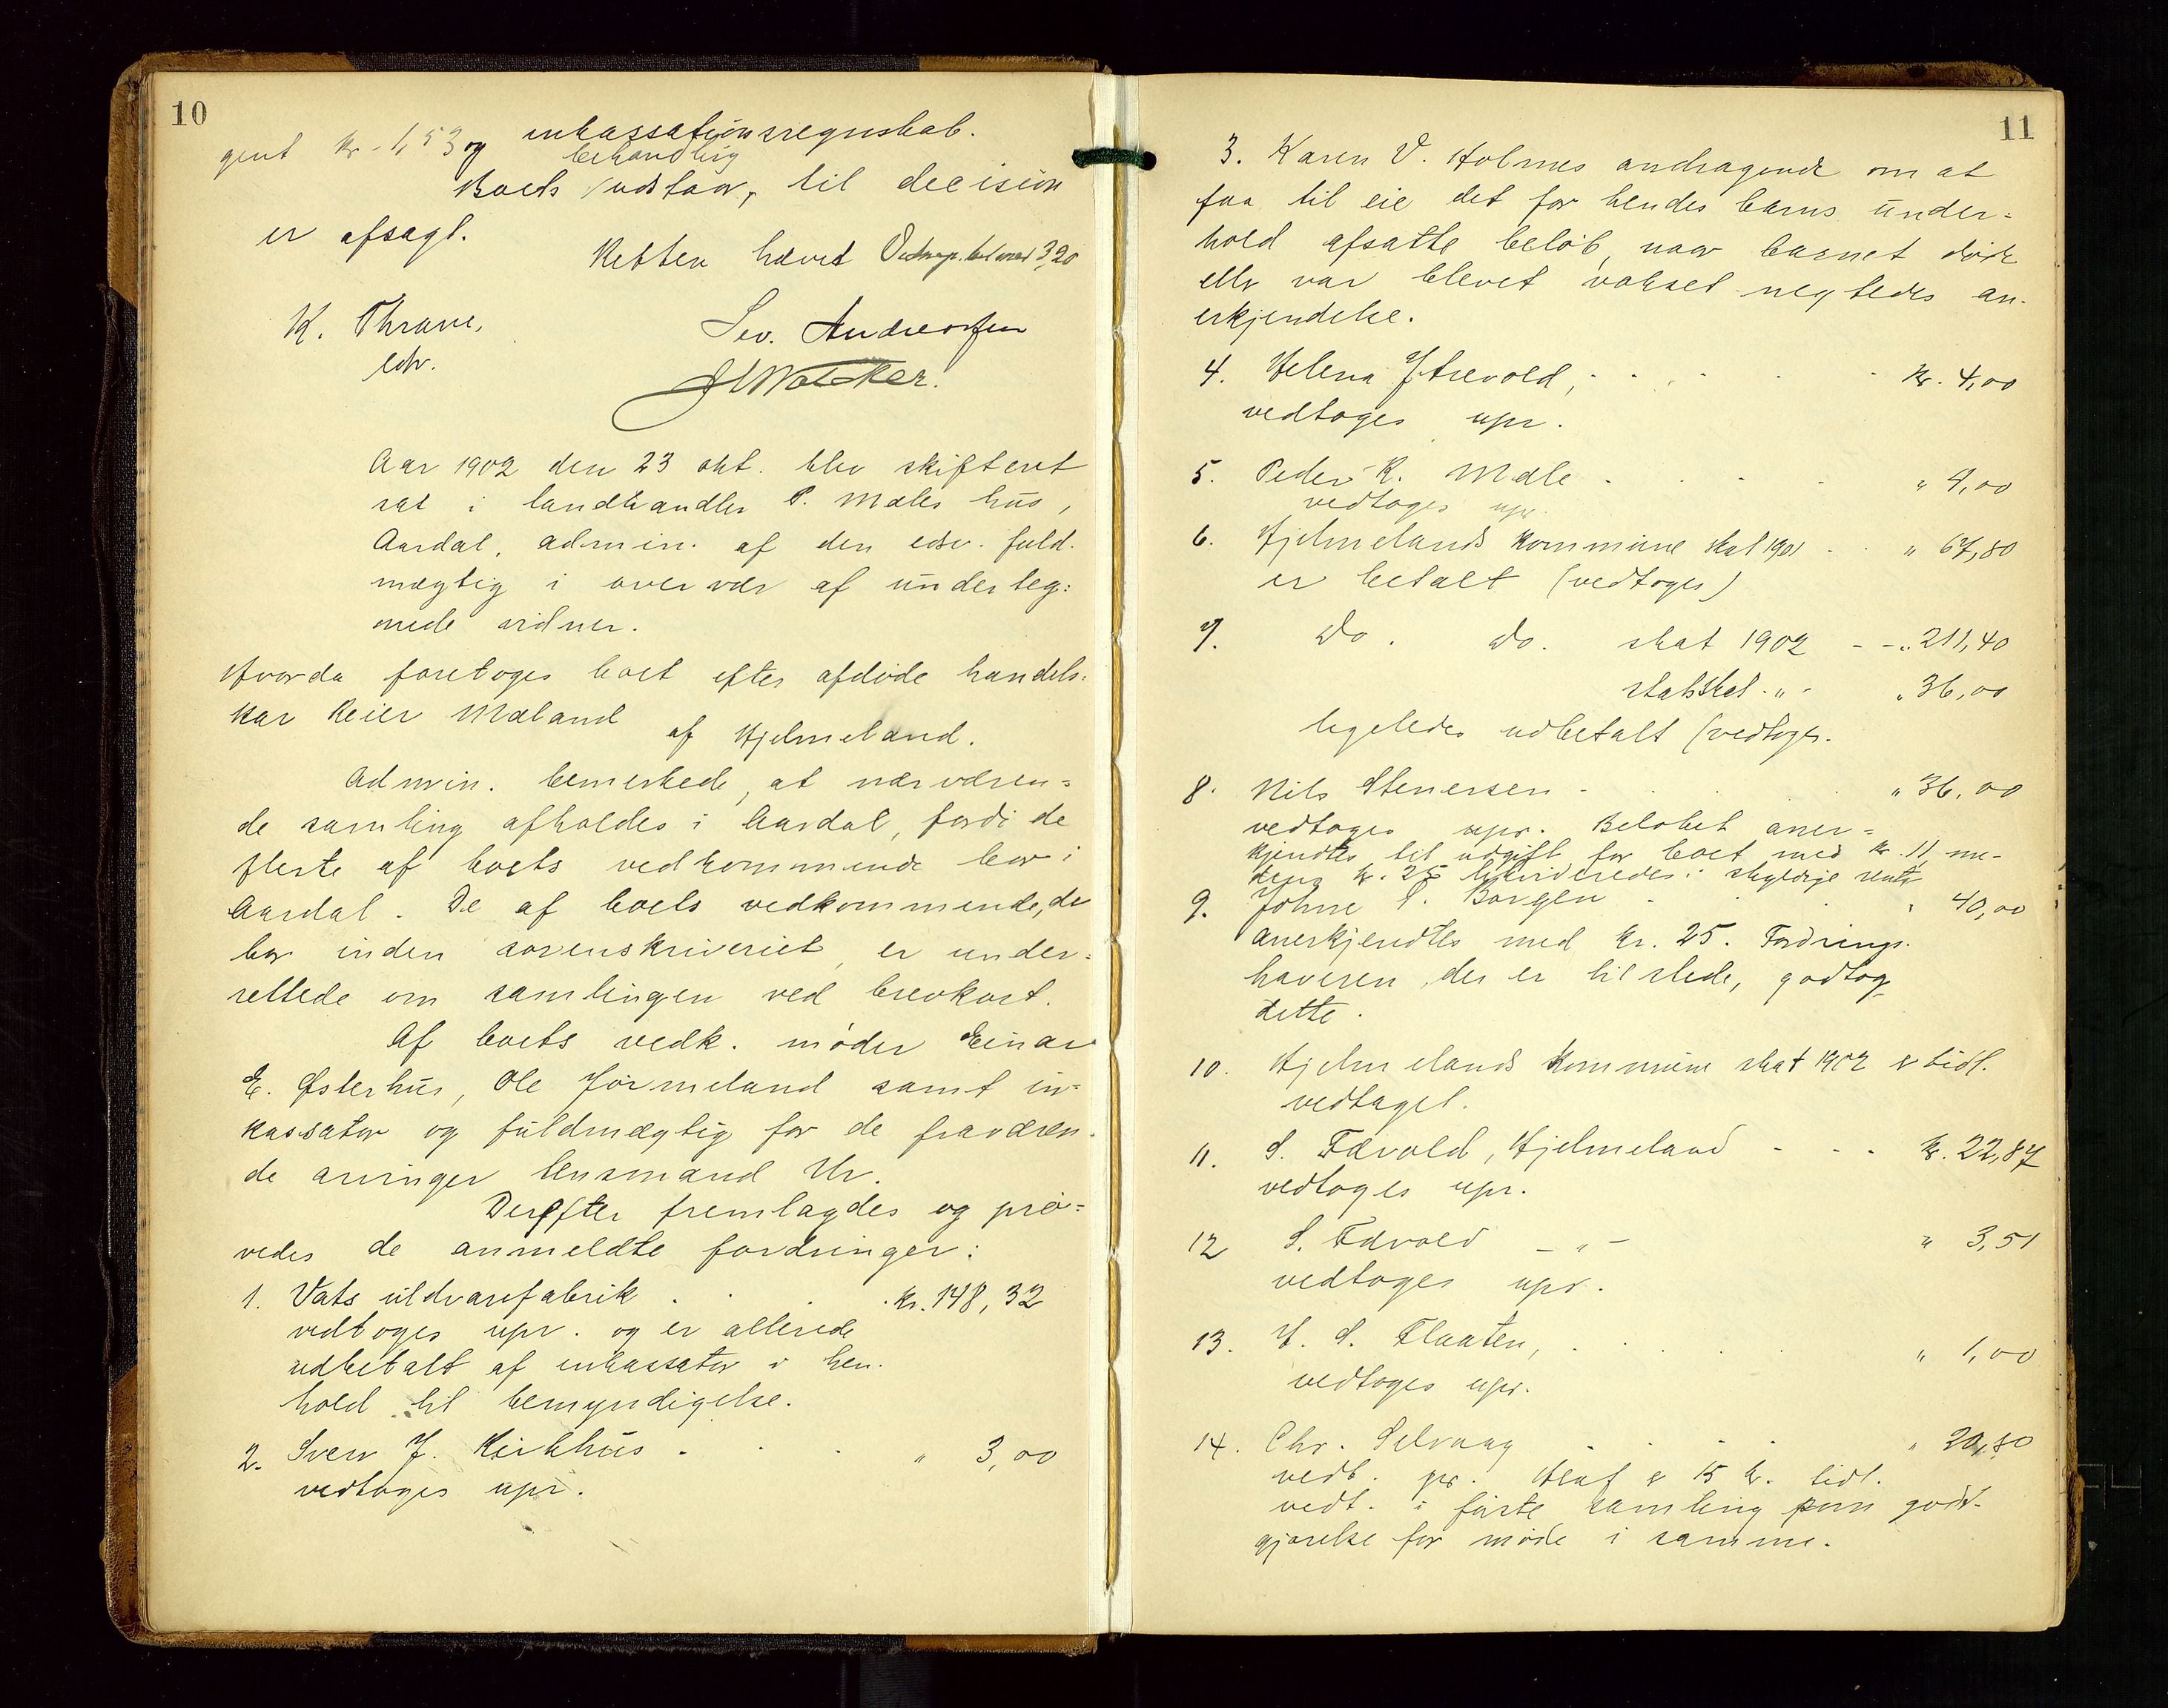 10
inkassationsregnskab.
gent kr. 1,53 og
behandling
Boets udstaar, til decision
er afsagt.
Retten hævet
K. Thrane,
edv.
Sev. Andreassen
Aar 1902 den 23 okt. blev skifteret
sat i landhandler P. Mæles hus,
Aardal, admin. af den edsv. fuld-
mægtig i overvær af underteg:
nede vidner.
Hvorda foretoges boet efter afdøde handels:
kar Reier Mæland
af Hjelmeland.
Admin. bemerkede, at nærværen=
de samling afholdes i Aardal, fordi de
fleste af boets vedkommende bor i
Aardal. De af boets vedkommende, der
bor inden sorenskriveriet, er under=
rettede om samlingen ved brevkort.
Af boets vedk. møder Einar
E. Østerhus, Ole Tørmeland samt in=
kassator og fuldmægtig for de fraværen-
de arvinger lensmand Ur.
Derefter fremlagdes og prø=
vedes de anmeldte fordringer:
1. Vats uldvarefabrik . . . kr. 148,32
vedtoges upr. og er allerede
udbetalt af inkassator i hen-
hold til bemyndigelse.
2. Sven J. Kirkhus . . . " 3,00
vedtoges upr.
11
3. Karen V. Holmes andragende om at
faa til eie det for hendes barns under=
hold afsatte beløb, naar barnet døde
eller var blevet vokset negtedes an-
erkjendelse.
4. Helena Ytrevold, - - - - kr. 4,00
vedtoges upr.
5. Peder R. Mæle . . . " 4,00
vedtoges upr.
6. Hjelmelands kommune skat 1901 - - " 67,80
er betalt (vedtoges)
7. Do. Do. skat 1902 - - " 211,40
statsskat - " - " 36,00
ligeledes udbetalt (vedtoges.
8. Nils Stenersen - . . " 36,00
vedtoges upr. Beløbet aner=
kjendtes til udgift for boet med kr. 11, me-
dens kr. 25 likvideredes i skyldige rente
9. Johne P. Borgen . . . " 40,00
anerkjendtes med kr. 25. Fordrings-
haveren, der er tilstede, godtog
dette.
10. Hjelmelands kommune skat 1902 er tidl.
vedtaget.
11. S. Fævold, Hjelmeland - - - kr. 22,87
vedtoges upr.
12 S. Fævold - " - " 3,51
vedtoges upr.
13. H. S. Flaaten, . . . . " 1,00
vedtoges upr.
14. Chr. Selvaag - - - - " 20,80
vedt. pr. Heraf er 15 kr. tidl.
vedt. i første samling som godt-
gjørelse for møde i samme.